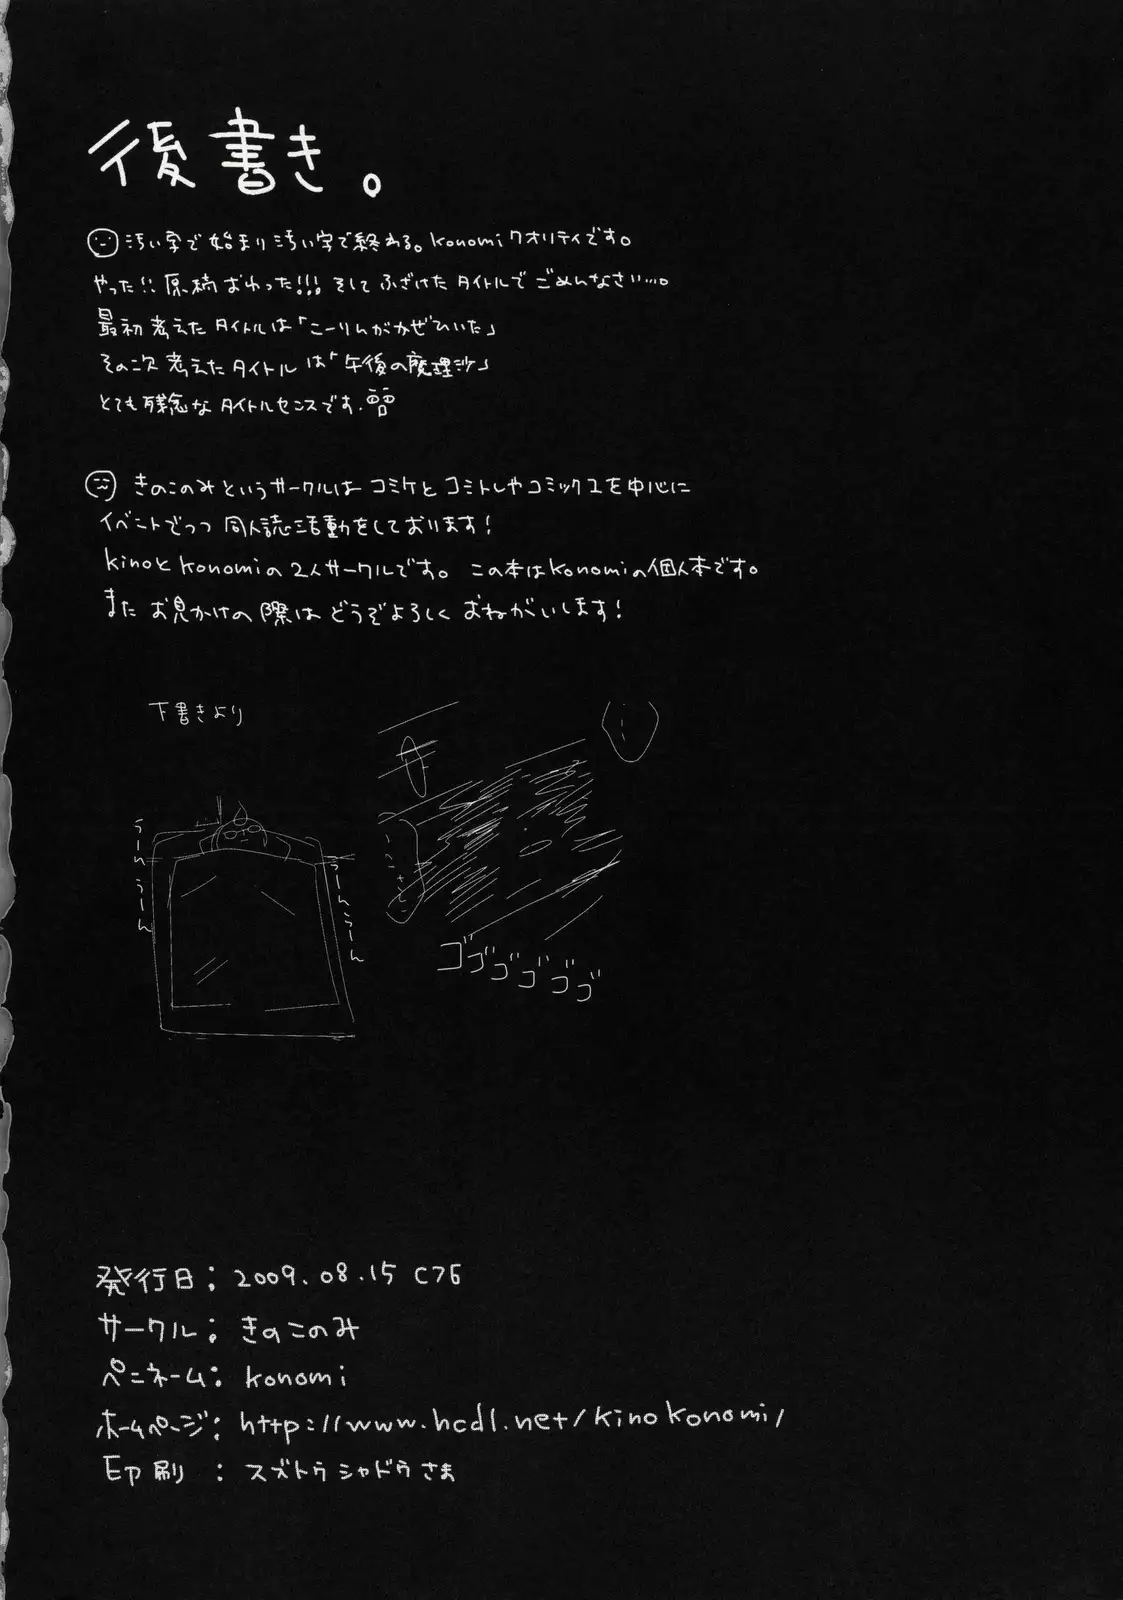 後書き。
汚い字で始まり汚い字で終わる。konomiクオリティです。
やった!!原稿おわった!!!そしてふざけたタイトルでごめんなさい…。
最初考えたタイトルは「こーりんがかぜひいた」
その次考えたタイトルは「午後の魔理沙」
とても残念なタイトルセンスです.
きのこのみというサークルはコミケとコミトレやコミック1を中心に
イベントでつつ同人誌活動をしております!
kinoとkonomiの2人サークルです。この本はkonomiの個人本です。
またお見かけの際はどうぞよろしくおねがいします!
下書きより
うーんうーん
うーんうーん
ゴゴゴゴゴゴ
発行日:2009.08.15 C76
サークル:きのこのみ
ペンネーム:konomi
ホームページ:http://www.hcdl.net/kinokonomi/
印刷 :スズトウシャドウさま